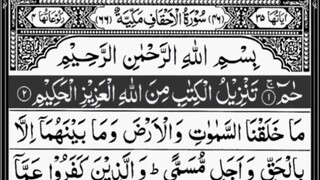 اٰيَاتُهَا ٣٥ (٤٦) سُوْرَةُ الْاَحْقَافِ مَكِّيَّةٌ (٦٦) رُكُوْعَاتُهَا ٤
بِسْمِ اللّٰهِ الرَّحْمٰنِ الرَّحِيْمِ
حٰمٓ ۚ﴿۱﴾ تَنْزِيْلُ الْكِتٰبِ مِنَ اللّٰهِ الْعَزِيْزِ الْحَكِيْمِ ﴿۲﴾
مَا خَلَقْنَا السَّمٰوٰتِ وَالْاَرْضَ وَمَا بَيْنَهُمَاۤ اِلَّا
بِالْحَقِّ وَاَجَلٍ مُّسَمًّى ؕ وَالَّذِيْنَ كَفَرُوْا عَمَّاۤ